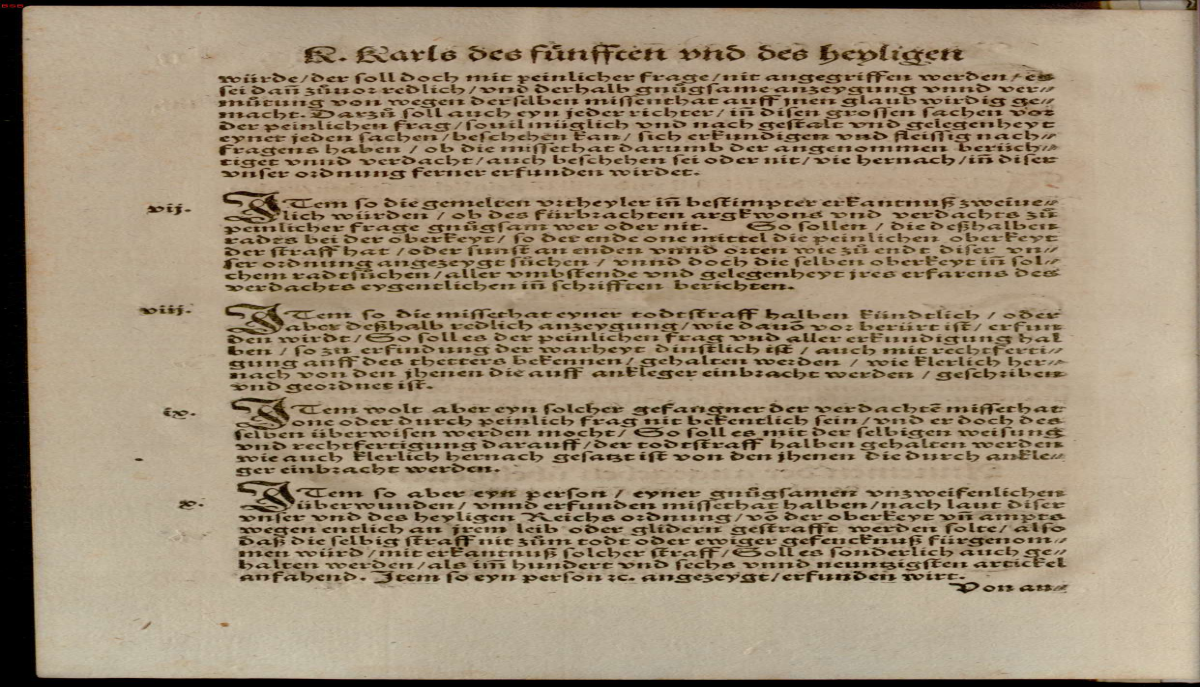 K. Karls des fünfften vnd des heyligen
würde/der soll doch mit peinlicher frage/nit angegriffen werden/es
sei dañ zůuor redlich/vnd derhalb gnůgsame anzeygung vnnd ver⸗
můtung von wegen derselben missenthat auff jnen glaub wirdig ge⸗
macht. Darzů soll auch eyn jeder richter/iñ disen grossen sachen vor
der peinlichen frag/souil müglich vnd nach gestalt vnd gelegenheyt
eyner jeden sachen/beschehen kan/sich erkundigen vnd fleissig nach⸗
fragens haben/ob die missethat darumb der angenommen berüch⸗
tiget vnnd verdacht/auch beschehen sei oder nit/wie hernach/iñ diser
vnser ordnung ferner erfunden wirdet.
vij. ITem so die gemelten vrtheyler iñ bestimpter erkantnuß zweiue⸗
lich würden/ob des fürbrachten argkwons vnd verdachts zů
peinlicher frage gnůgsam wer oder nit. So sollen/die deßhalben
radts bei der oberkeyt/so der ende one mittel die peinlichen oberkeyt
der straff hat/oder sunst an enden vnnd orten wie zů endt diser vn⸗
ser ordnung angezeygt sůchen/vnnd doch die selben oberkeyt iñ sol⸗
chem radtsůchen/aller vmbstende vnd gelegenheyt jres erfarens des
verdachts eygentlichen iñ schrifften berichten.
viij. ITem so die missethat eyner todtstraff halben kündtlich/oder
aber deßhalb redlich anzeygung/wie dauõ vor berürt ist/erfun
den wirdt/So soll es der peinlichen frag vnd aller erkundigung hal
ben/so zů erfindung der warheyt dinstlich ist/auch mit rechtferti⸗
gung auff des thetters bekennen/gehalten werden/wie klerlich her⸗
nach von den jhenen die auff ankleger einbracht werden/geschriben
vnd geordnet ist.
ix. ITem wolt aber eyn solcher gefangner der verdachtẽ missethat
one oder durch peinlich frag nit bekentlich sein/vnd er doch des
selben überwisen werden mocht/So soll es mit der selbigen weisung
vnd rechtfertigung darauff/der todtstraff halben gehalten werden
wie auch klerlich hernach gesatzt ist von den jhenen die durch ankle⸗
ger einbracht werden.
x. ITem so aber eyn person/eyner gnůgsamen vnzweifenlichen
überwunden/vnnd erfunden missethat halben/nach laut diser
vnser vnd des heyligen Reichs ordnung/võ der oberkeyt vñ ampts
wegen entlich an jrem leib oder glidern gestrafft werden solte/also
daß die selbig straff nit zům todt oder ewiger gefencknuß fürgenom⸗
men würd/mit erkantnuß solcher straff/Soll es sonderlich auch ge⸗
halten werden/als im̃ hundert vnd sechs vnnd neuntzigsten artickel
anfahend. Item so eyn person ꝛc. angezeygt/erfunden wirt.
Von an⸗